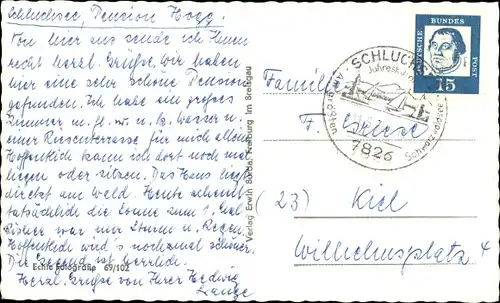 Schluchsee, Pension Hogg.
Von hier aus sende ich Ihnen
recht herzl. Grüße, wir haben
hier eine sehr schöne Pension
gefunden. Ich habe ein großes
Zimmer u. k. Wasser u.
einer Riesenterrasse für mich allein.
Hoffentlich kann ich dort noch mal
liegen oder sitzen. Das Haus liegt
direkt am Wald. Heute scheint
tatsächlich die Sonne zum 1. Mal
Bisher war nur Sturm u. Regen
Hoffentlich wird's nochmal schöner.
Die Gegend ist herrlich.
Herzl. Grüße von Ihrer Hedwig
Lange
Echte Fotografie 69/102
Verlag Erwin Burda, Freiburg im Breisgau
DEUTSCHE BUNDESPOST
15
SCHLUCHSEE
7826
Familie
F. Griese
(23) Kiel
Wilhelmsplatz 4